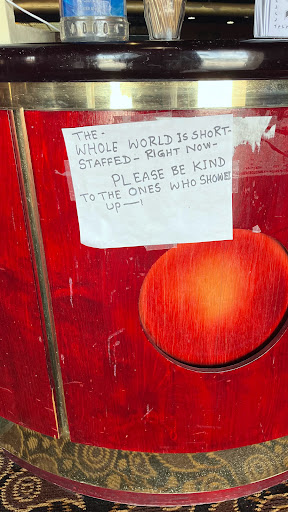 THE-
WHOLE WORLD IS SHORT-
STAFFED- RIGHT NOW-
PLEASE BE KIND
TO THE ONES WHO SHOWED
UP—!